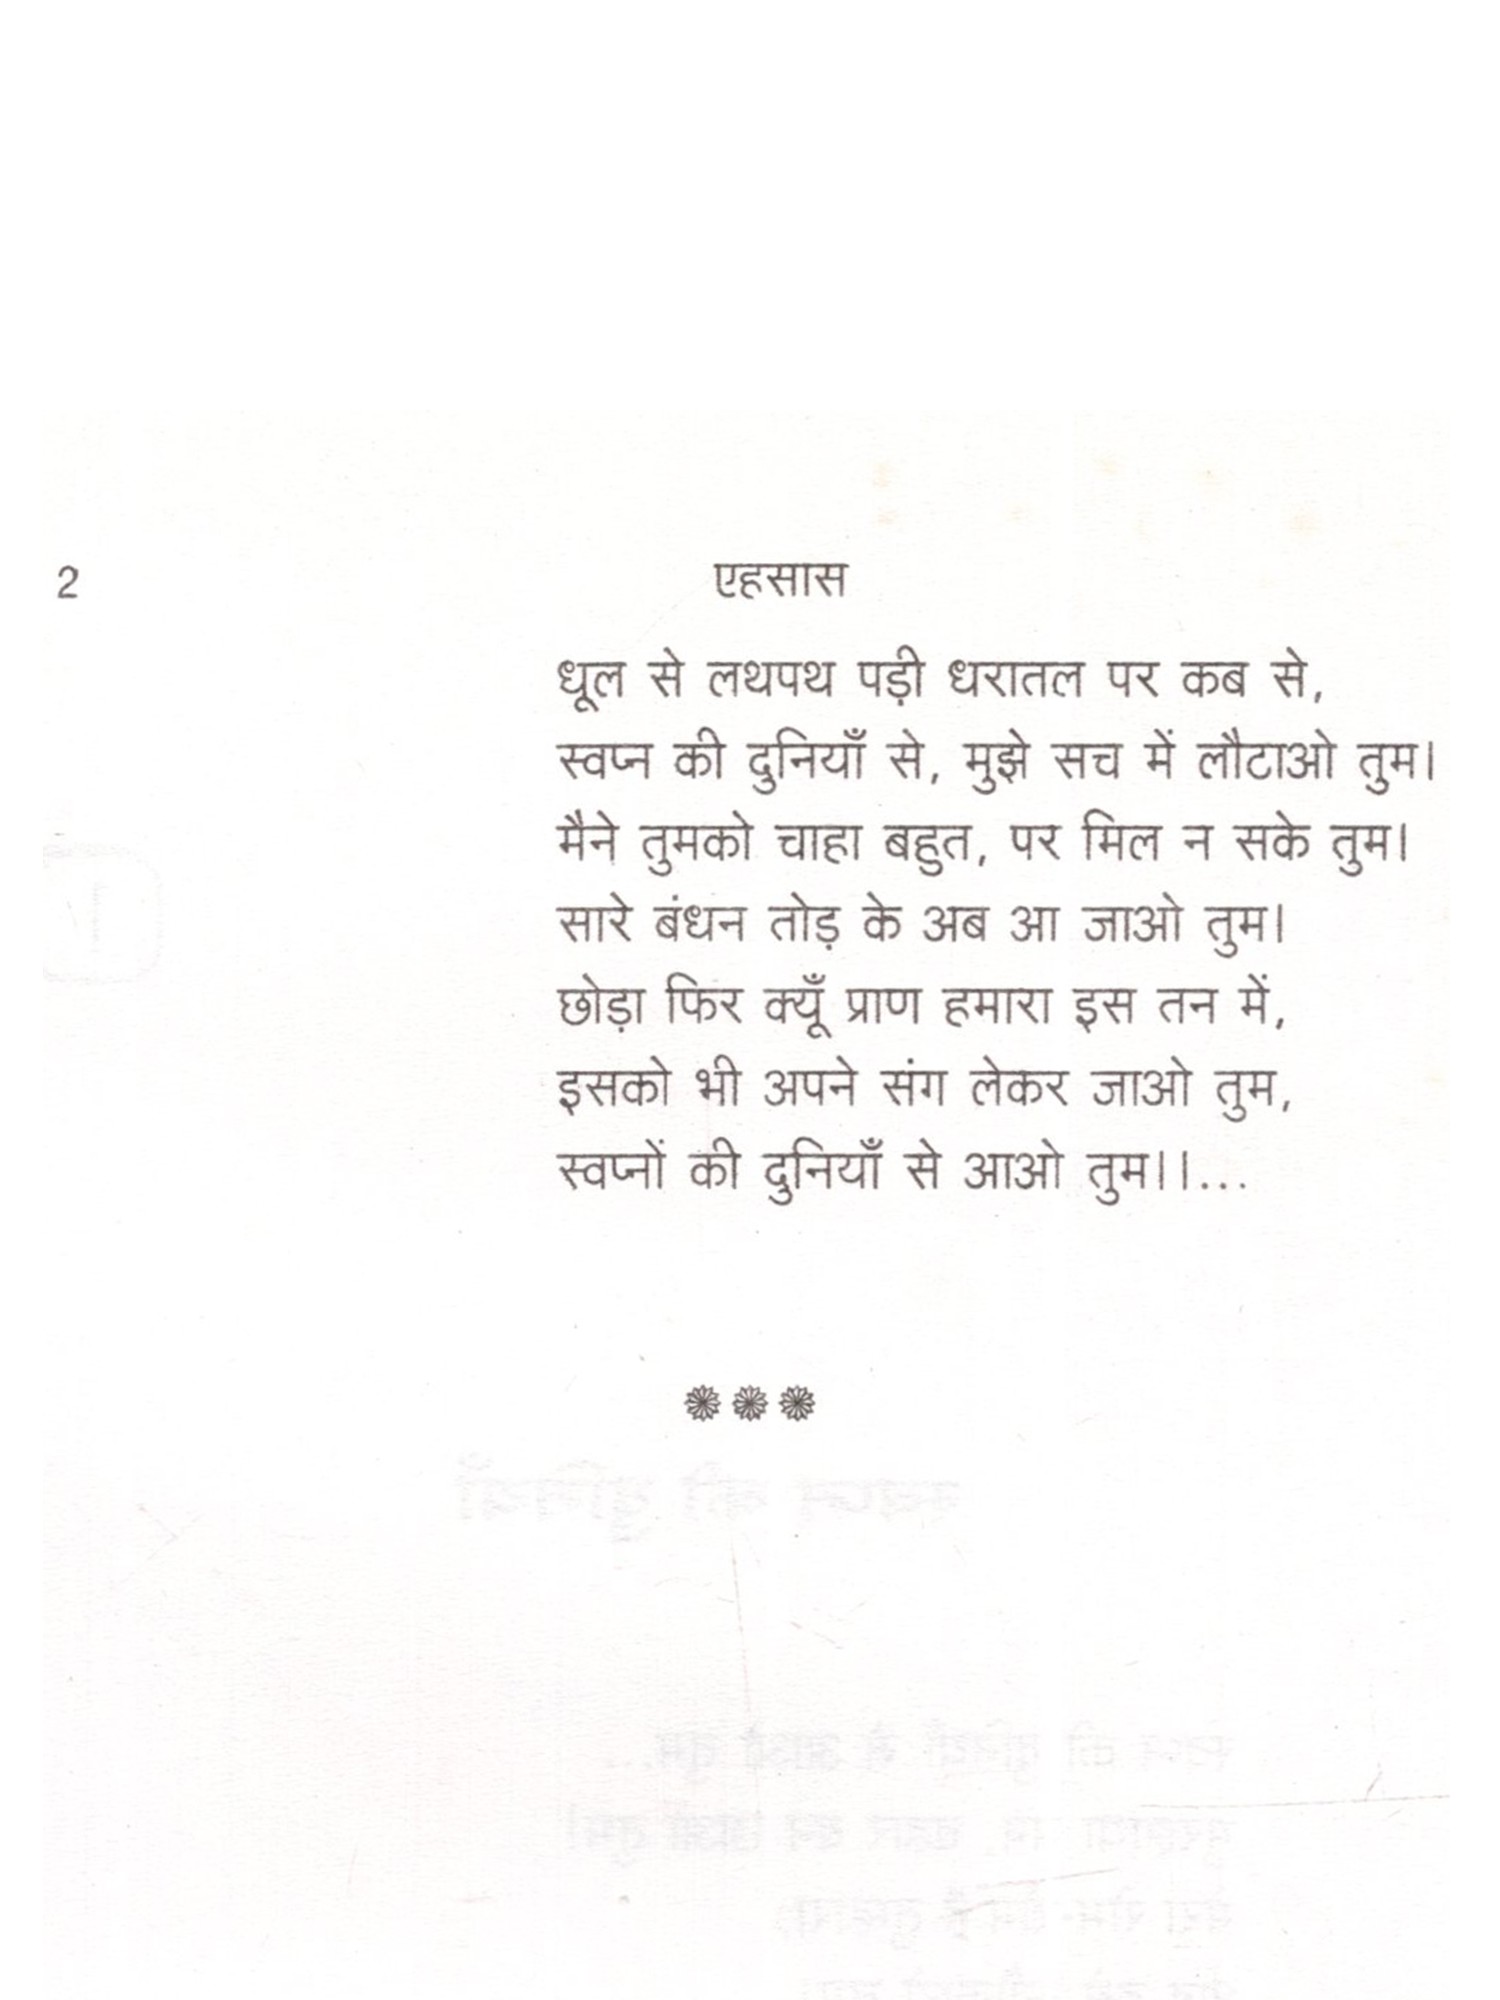 2 एहसास
धूल से लथपथ पड़ी धरातल पर कब से,
स्वप्न की दुनियाँ से, मुझे सच में लौटाओ तुम।
मैने तुमको चाहा बहुत, पर मिल न सके तुम।
सारे बंधन तोड़ के अब आ जाओ तुम।
छोड़ा फिर क्यूँ प्राण हमारा इस तन में,
इसको भी अपने संग लेकर जाओ तुम,
स्वप्नों की दुनियाँ से आओ तुम।।...